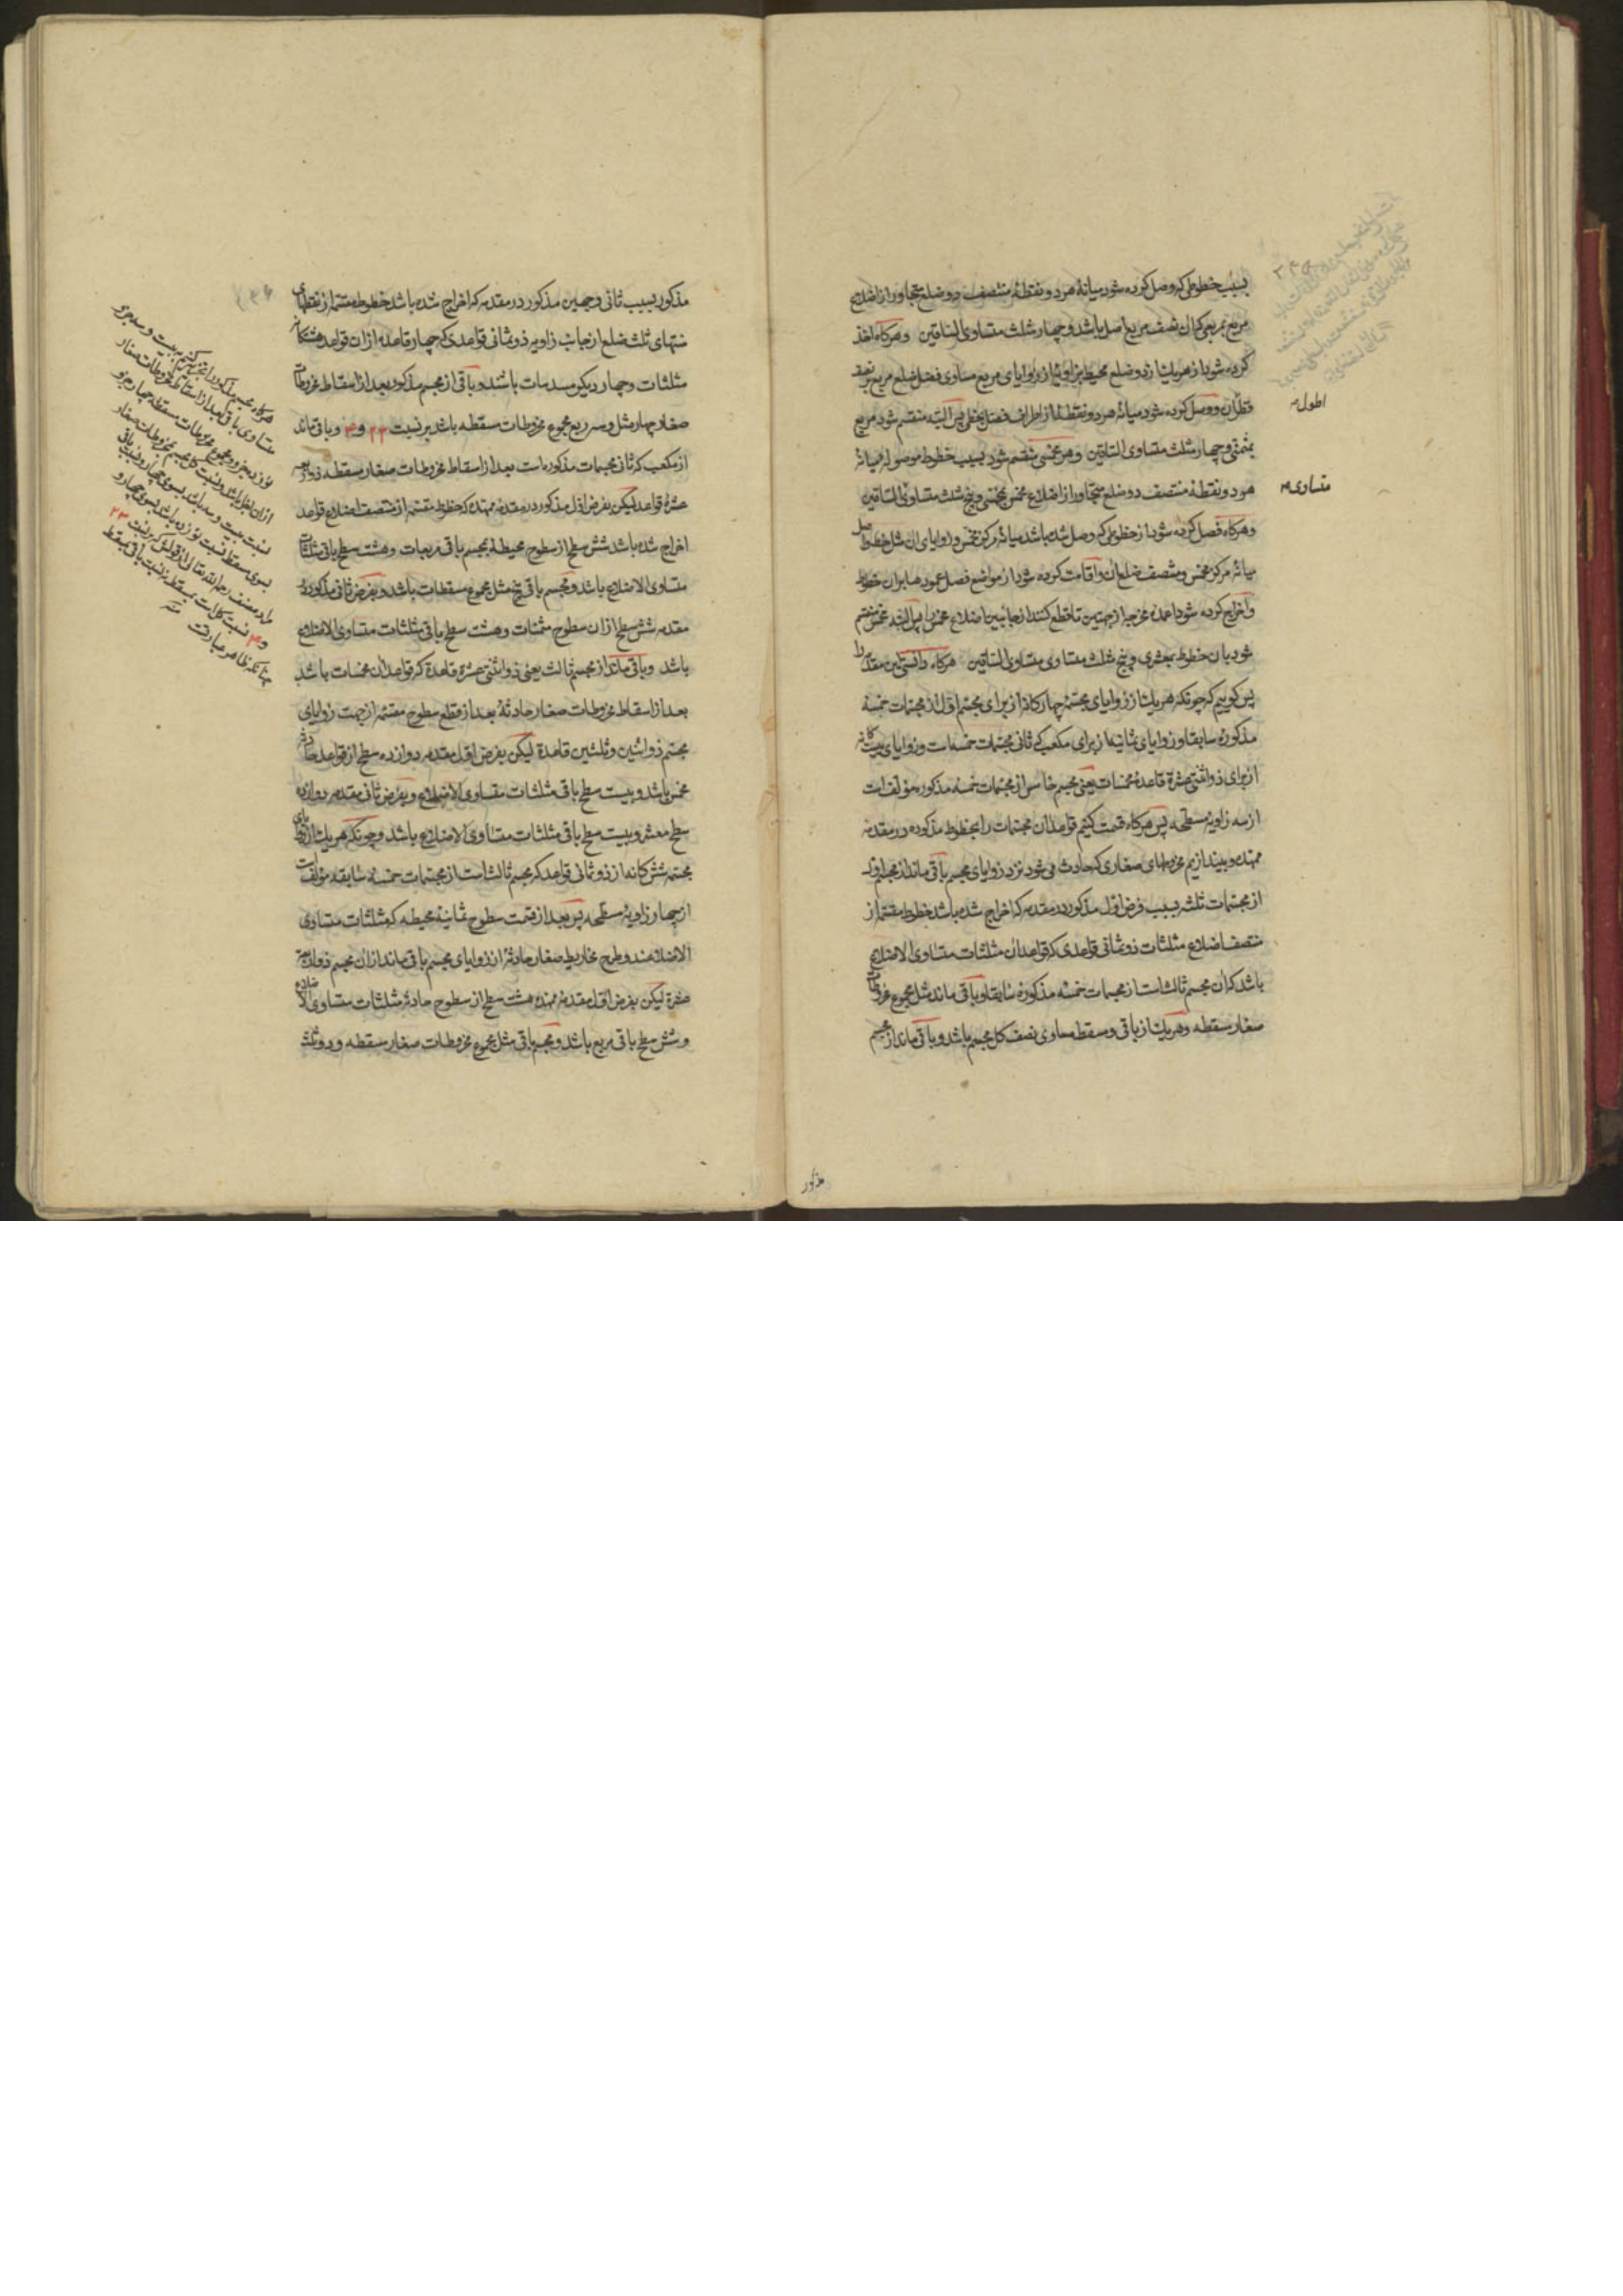 بسبب خطوطی که وصل کرده شود میانهٔ هر دو نقطهٔ منتصف دو ضلع متجاور از اضلاع
مربع بمربعی که آن نصف مربع اصل باشد و چهار مثلث متساوی الساقین وهرکاه اخذ
کرده شود از هر یک از دو ضلع محیط بزاویهٔ از زوایای مربع مساوی فضل ضلع مربع بر نصف
قطر آن و وصل کرده شود میانهٔ هر دو نقطهٔ از اطراف فضل بخطی پس البته منقسم شود مربع
بمثمنی و چهار مثلث متساوی الساقین وهر مخمسی منقسم شود بسبب خطوط موصوله میانهٔ
هر دو نقطهٔ منتصف دو ضلع متجاور از اضلاع مخمس بمخمسی و پنج مثلث متساوی الساقین
وهرکاه فصل کرده شود از خطوطی که وصل شده باشد میانهٔ مرکز مخمس و زوایای آن مثل خطوط
میانهٔ مرکز مخمس و منتصف ضلع آن و اقامت کرده شود از مواضع فصل عمودها بران خطوط
واخراج کرده شود اعمده مخرجه از جهتین تا قطع کنند از جانبین اضلاع مخمس را پس البته مخمس منقسم
شود بان خطوط بمعشری و پنج مثلث متساوی متساوی الساقین هرکاه دانستی این مقدمه را
پس کوییم که چونکه هر یک از زوایای مجسمهٔ چهارکانه از برای مجسم اول از مجسمات خمسه
مذکورهٔ سابقا و زوایای ثمانیه از برای مکعب که ثانی مجسمات خمسه است و زوایای بیست کانه
از برای ذو اثنتی عشرة قاعدهٔ مخمسات یعنی مجسم خامس از مجسمات خمسه مذکوره مؤلف است
از سه زاویهٔ مسطحه پس هرکاه قسمت کنیم قواعد آن مجسمات را بخطوط مذکوره در مقدمه
ممهده و بیندازیم مخروطهای صغاری که حادث می شود نزد زوایای مجسم باقی ماند از مجسم اول
از مجسمات ثلثه بسبب فرض اول مذکور در مقدمه که اخراج شده باشد خطوط مقسمه از
منتصف اضلاع مثلثات ذو ثمانی قواعدی که قواعد آن مثلثات متساوی الاضلاع
باشد که آن مجسم ثالث است از مجسمات خمسه مذکورهٔ سابقا و باقی ماند مثل مجموع مخروطات
صغار مسقطه وهر یک از باقی و مسقطه مساوی نصف کل مجسم باشد و باقی ماند از مجسم
اطول م
متساوی م
مذکور
مذکور بسبب ثانی وجهین مذکور در مقدمه که اخراج شده باشد خطوط مقسمه از نقطهای
منتهای ثلث ضلع از جانب زاویه ذو ثمانی قواعدی که چهار قاعده ازان قواعد هشتکانه
مثلثات و چهار دیکر مسدسات باشند و باقی از مجسم مذکور بعد از اسقاط مخروطات
صغار چهار مثل و سه ربع مجموع مخروطات مسقطه باشد بر نسبت ۲۳ و ۴ و باقی ماند
از مکعب که ثانی مجسمات مذکوره است بعد از اسقاط مخروطات صغار مسقطه ذو اربعه
عشرة قواعد لیکن بفرض اول مذکور در مقدمهٔ ممهده که خطوط مقسمه از منتصف اضلاع قواعد
اخراج شده باشد شش سطح از سطوح محیطهٔ بمجسم باقی مربعات و هشت سطح باقی مثلثات
متساوی الاضلاع باشد و مجسم باقی پنج مثل مجموع مسقطات باشد و بفرض ثانی مذکور در
مقدمه شش سطح ازان سطوح مثمنات و هشت سطح باقی مثلثات متساوی الاضلاع
باشد وباقی ماند از مجسم ثالث یعنی ذو اثنتی عشرة قاعدة که قواعد آن مخمسات باشد
بعد از اسقاط مخروطات صغار حادثهٔ بعد از قطع سطوح مقسمه از جهت زوایای
مجسم ذو اثنین و ثلثین قاعدة لیکن بفرض اول مقدمه دوازده سطح از قواعد حادثه
مخمس باشد و بیست سطح باقی مثلثات متساوی الاضلاع و بفرض ثانی مقدمه دوازده
سطح معشر و بیست سطح باقی مثلثات متساوی الاضلاع باشد و چونکه هر یک از زوایای
مجسمه شش کانه از ذو ثمانی قواعد که مجسم ثالث است از مجسمات خمسه سابقه مؤلف است
از چهار زاویهٔ مسطحه پس بعد از قسمت سطوح ثمانیهٔ محیطه که مثلثات متساوی
الاضلاعند و طرح مخاریط صغار حادثه از زوایای مجسم باقی ماند ازان مجسم ذو اربعة
عشرة لیکن بفرض اول مقدمهٔ ممهده هشت سطح از سطوح حادثه مثلثات متساوی الاضلاع
و شش سطح باقی مربع باشد و مجسم باقی مثل مجموع مخروطات صغار مسقطه و دو ثلث
هرکاه مجسم مذکور را تجزیه کنیم به بیست و سه جزو
مساوی باقی بعد از اسقاط مخروطات صغار
نوزده جزو و مجموع مخروطات مسقطه چهار جزو